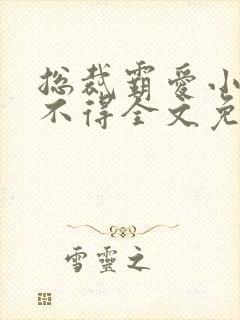 总裁霸爱小
不得全文免
雪靈之